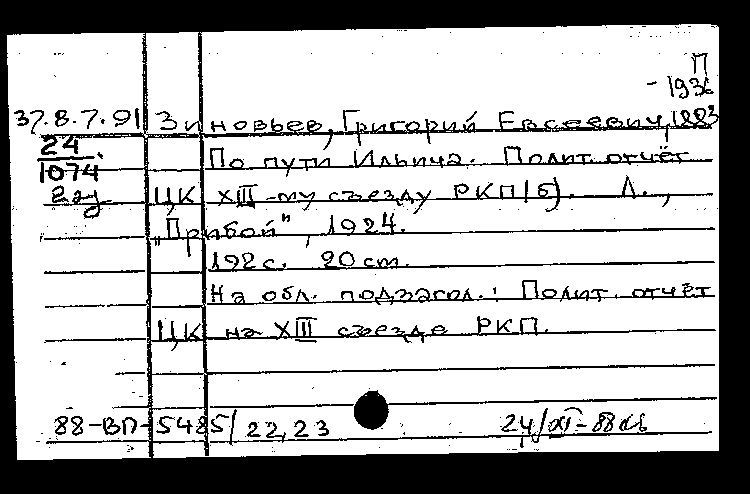 П
- 1936
37.8.7.91 Зиновьев, Григорий Евсеевич, 1883
24
1074
По пути Ильича. Полит. отчёт
ЦК XIII-му съезду РКП(б). Л.,
„Прибой", 1924.
192 с. 20 cm.
На обл. подзагол.: Полит. отчёт
ЦК на XIII съезде РКП.
88-ВП-5485/22,23 24/XI-88